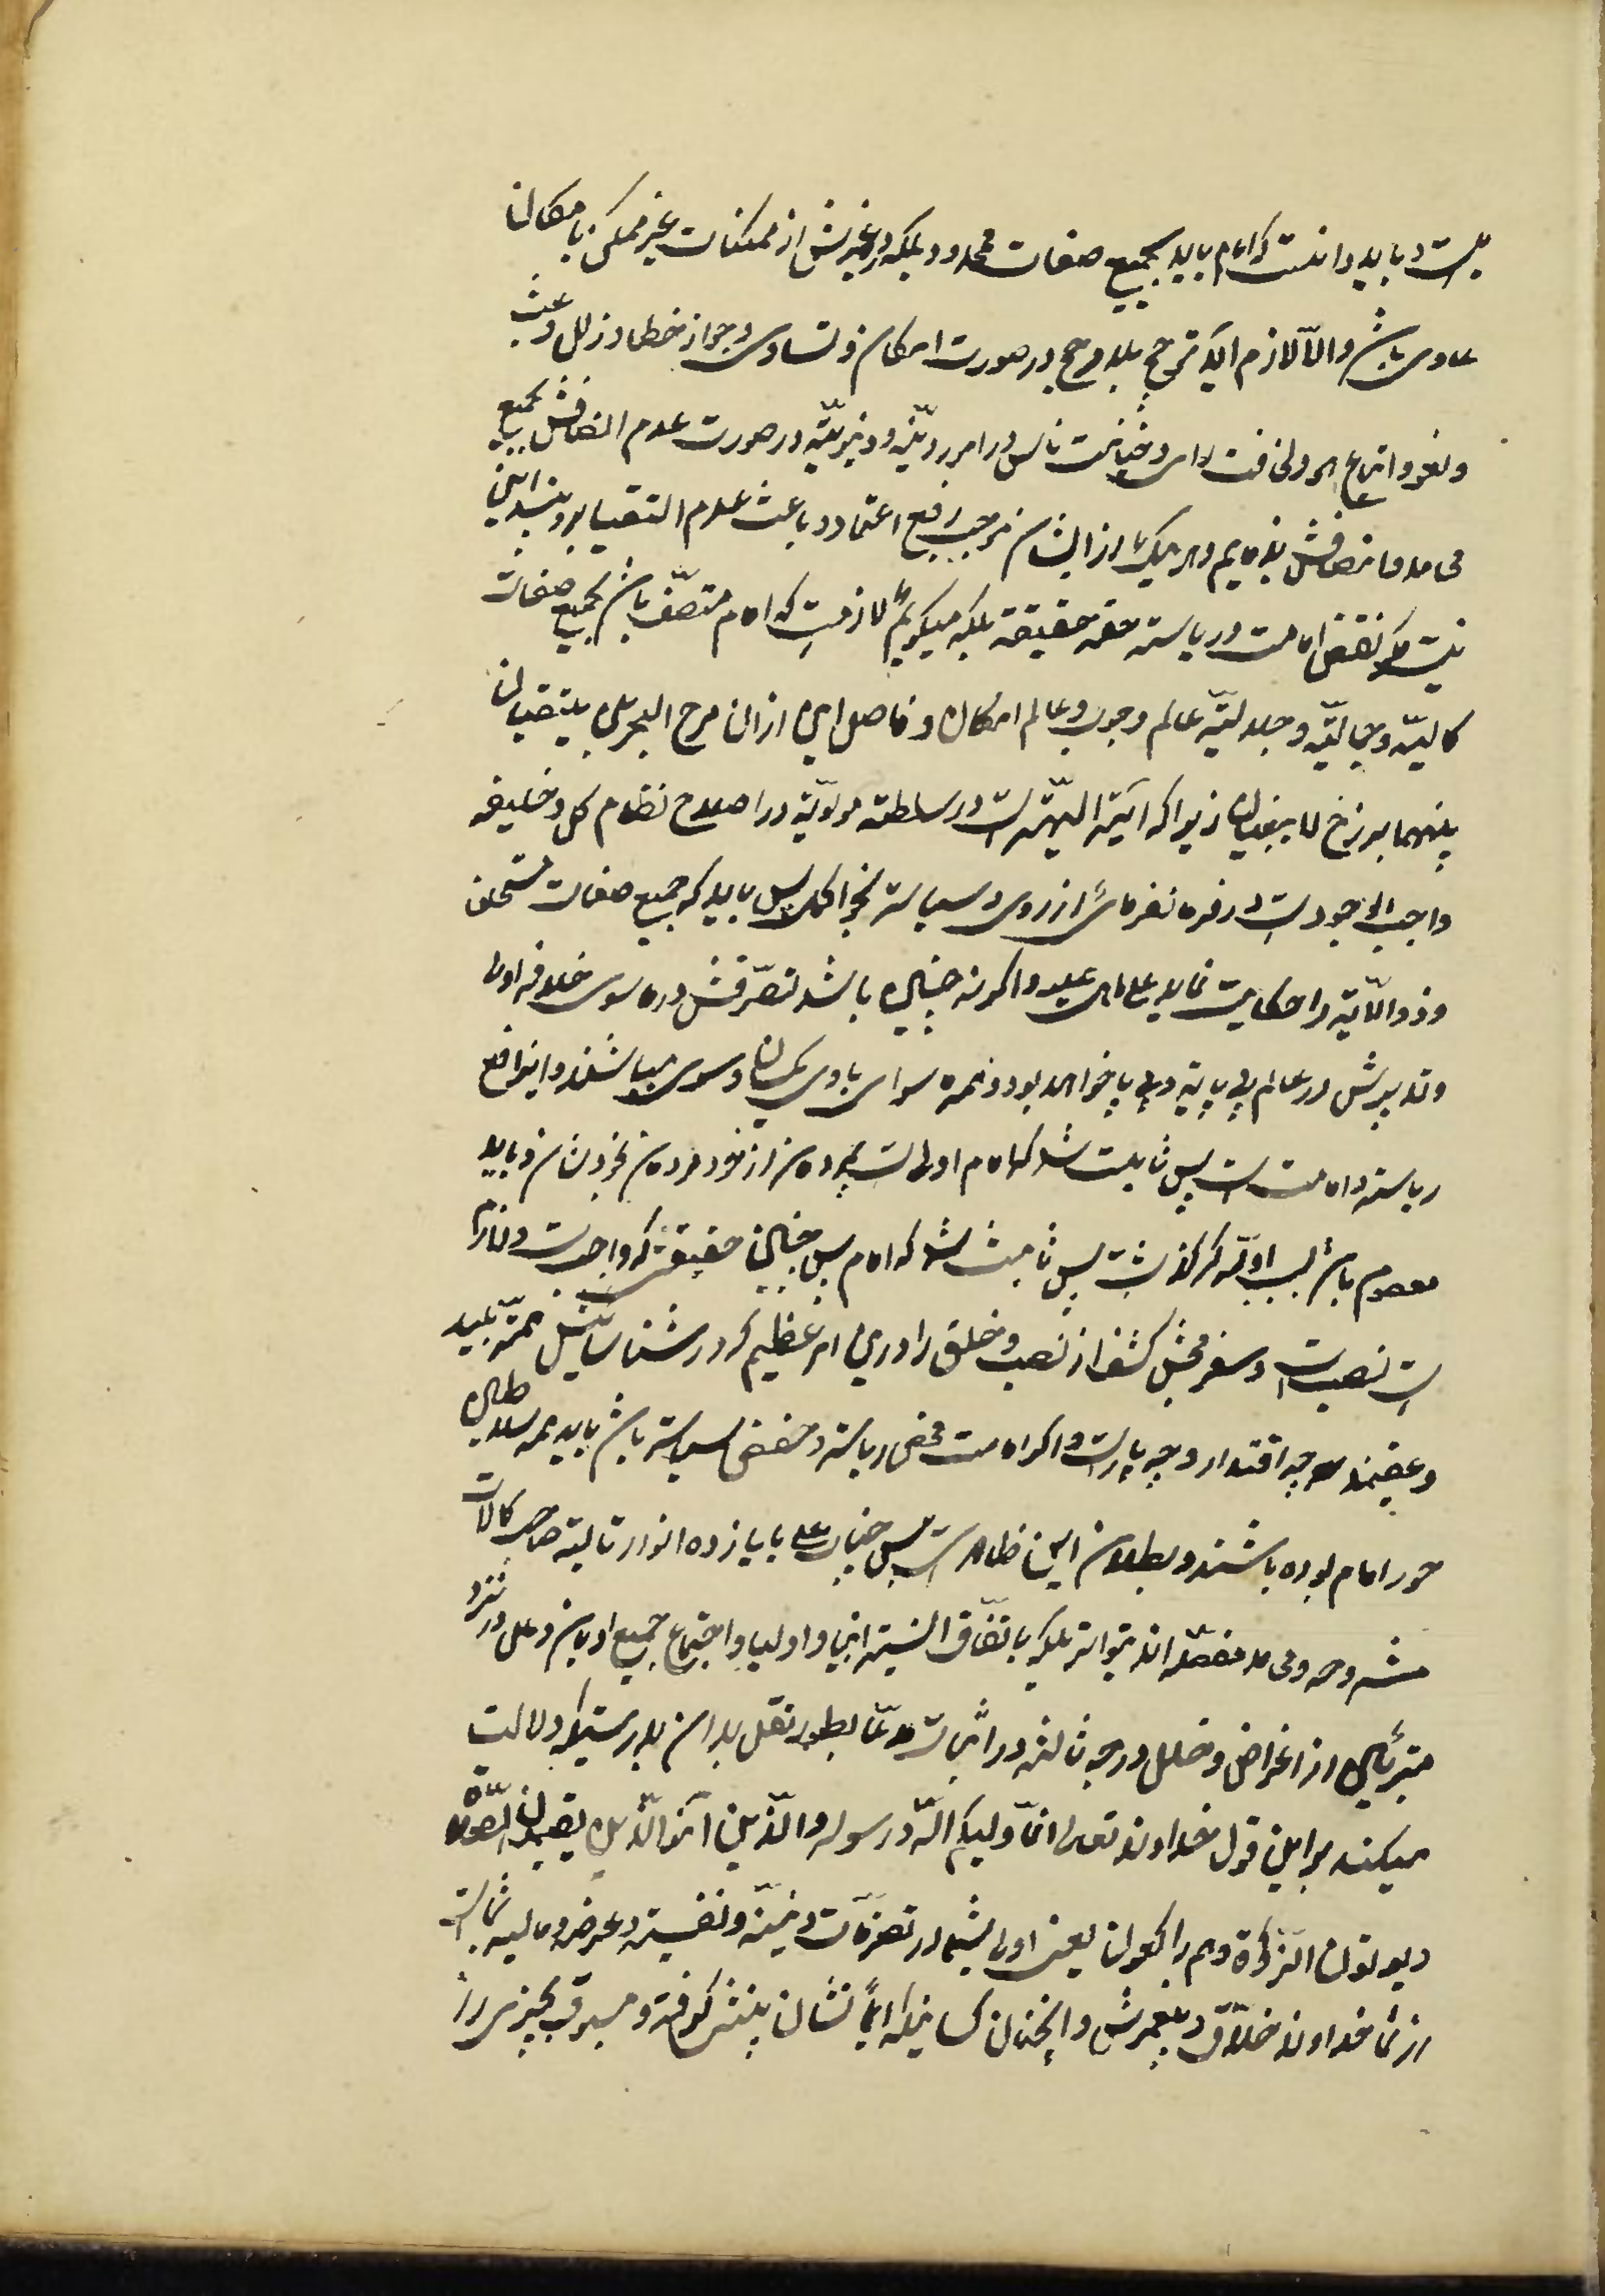 است و باید دانست که امام باید بجمیع صفات محدود بلکه در غیرش از ممکنات غیر ممکن بامکانها
حاوی باشد و الّا لازم آید ترجیح بلا مرجح در صورت امکان و تساوی و جواز خطا و زلل و عبث
و لغو و اتباع هوی و مخافت رای و خیانت ناس در امور دینیّه و دنیویّه در صورت عدم اتصافش بجمیع
محامد و اتصافش بذمایم و هر یک از ایشان موجب رفع اعتماد و باعث عدم انقیاد و نیست این
نیست مگر نقض امامت و ریاسته حقه حقیقة بلکه میگوئیم لازمست که امام متصف باشد بجمیع صفات
کمالیّه و جمالیّه و جلالیّه عالم وجوب و عالم امکان و فاصل این از آن مرج البحرین یلتقیان
بینهما برزخ لا یبغیان زیرا که آیته الهیّه است در سلطنه مولویّه در اصلاح نظام کل و خلیفه
واجب الوجود است در فرمانفرمائی از روی سیاسته بنحو اکمل پس باید که جمیع صفات مستخلف
و ذو الآیه را حکایت نماید علی ما هی علیه و اگر نه چنین باشد تصرّفش در ماسوی خلاف اولی
و تدبیرش در عالم بی پایه و بی پا خواهد بود و همه سوای با وی یکسان و سوی میباشند و این رافع
ریاسته و امامت است پس ثابت شد که امام اولی است بمردمان از خود مردمان بخودشان و باید
معصوم باشد بسبب ادلّه که گذشت پس ثابت شد که امام پس چنین حقیقتی که واجبست و لازم
است نصب است و مفرّی نیست از نصب و خلق را در این امر عظیم که در شناسائیش همّه بلید
و عقیمند چه اقتدار و چه یاراست و اگر امامت محض ریاسته و محض سیاسته باشد باید همه سلاطین
جور امام بوده باشند و بطلان این ظاهر است پس جناب علی با یازده انوار تالیه صاحب کمالات
مشروحه و محامد مفصّله اند بتواتر بلکه باتّفاق السنه انبیا و اولیا و اجتماع جمیع ادیان و ملل در نزد
متبرئین از اغراض و خلل درجه ثالثه در اثبات مدّعا بطور نقل بدان بدرستیکه دلالت
میکند بر این قول خداوند تعالی انّما ولیکم اللّه و رسوله و الّذین آمنوا الّذین یقیمون الصّلوة
و یوتون الزکوة و هم راکعون یعنی اولی بشما در تصرّفات دینیّه و نفسیّه و عرضیه و مالیه شما است
از شما خداوند خلاّق و پیغمبرش و آنچنان کسانیکه ایمانشان پیشی گرفته و مسبوق بچیزی را